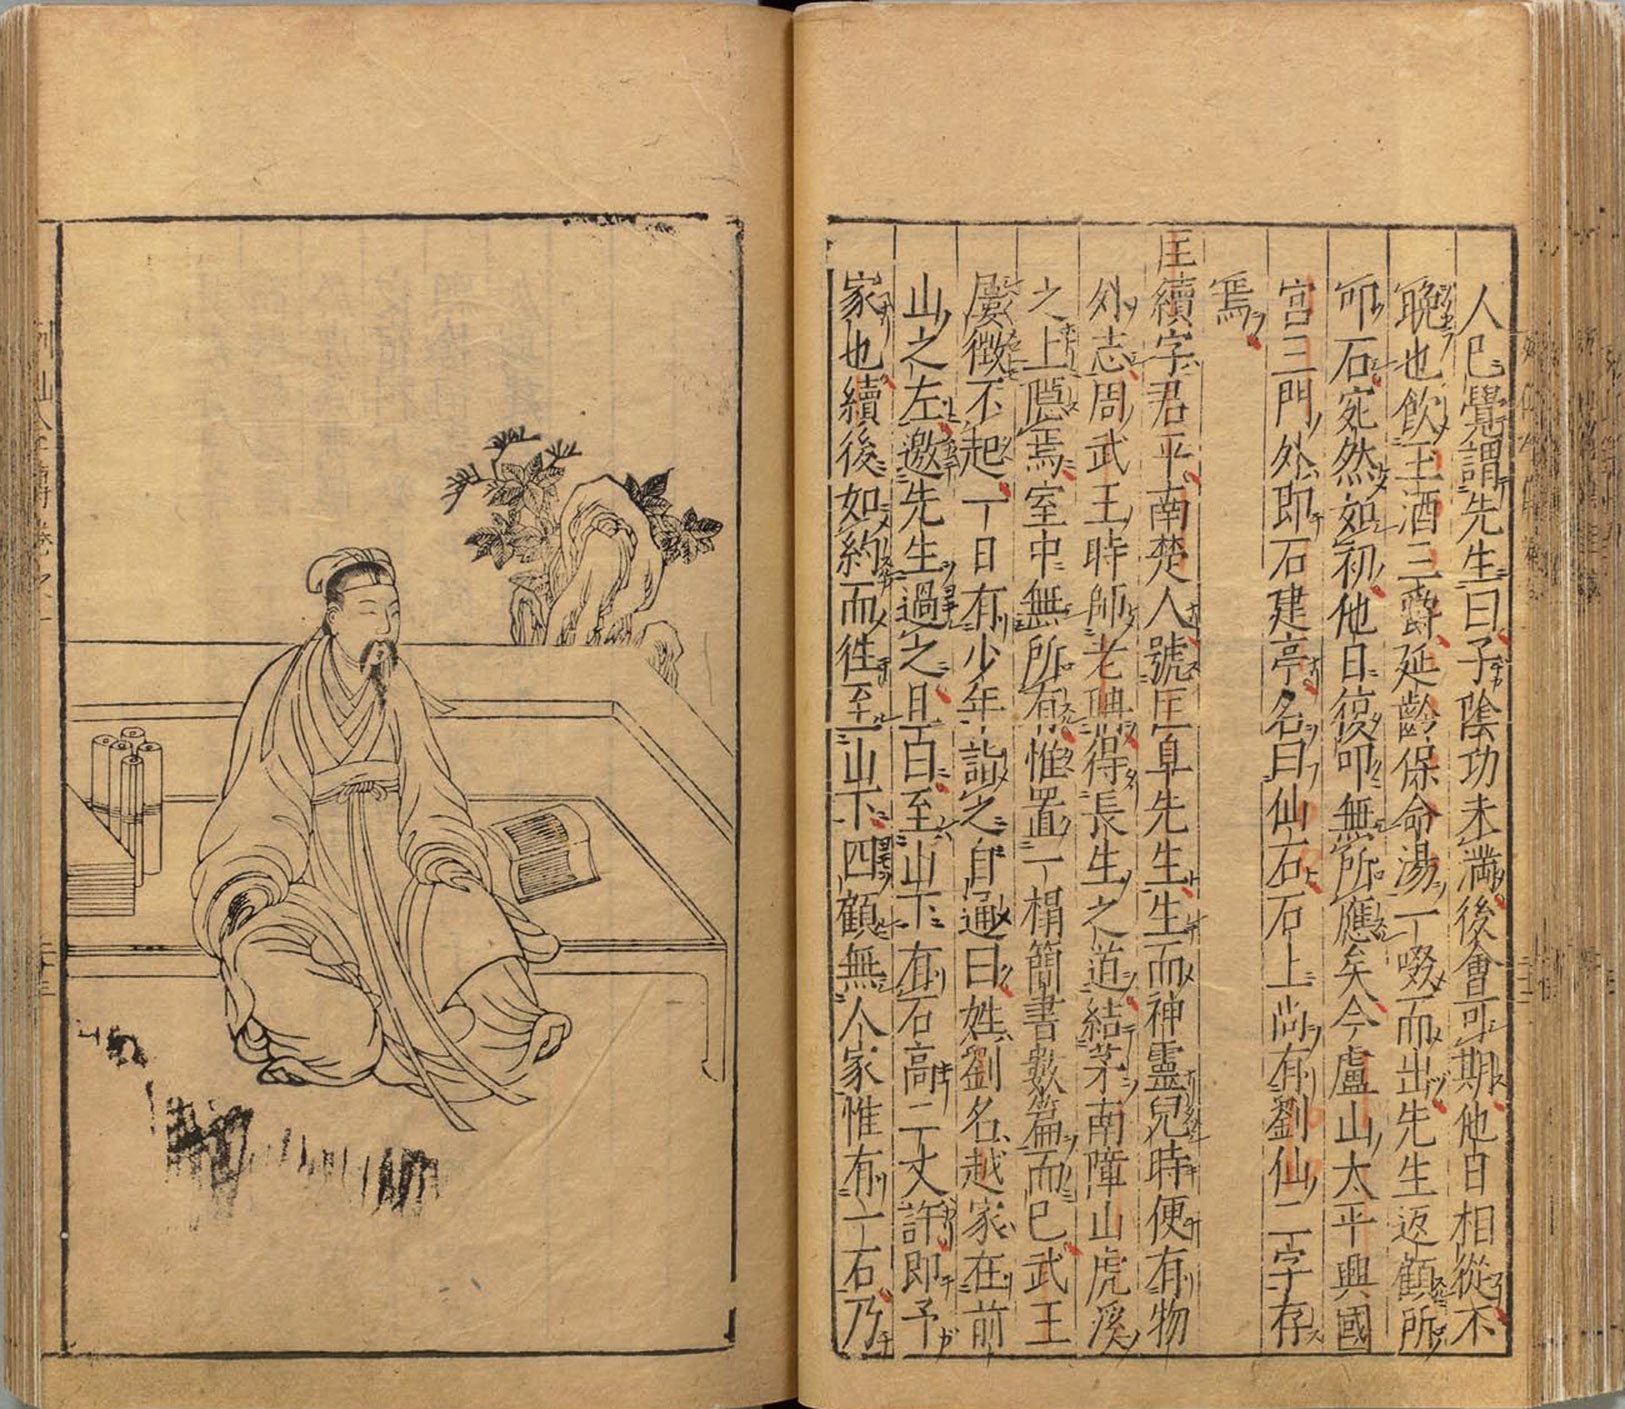 人已覺謂先生曰子陰功未滿後會可期他日相從不
晩也飲玉酒三爵延齡保命湯一啜而出先生返顧所
叩石宛然如初他日復叩無所應矣今廬山太平興國
宮三門外即石建亭名曰仙石石上尚有劉仙二字存
焉
匡續字君平南楚人號匡阜先生生而神靈兒時便有物
外志周武王時師老聃得長生之道結茅南障山虎溪
之上隱焉室中無所有惟置一榻簡書數篇而已武王
屢徵不起一日有少年詣之自通曰姓劉名越家在前
山之左邀先生過之且曰至山下有石高二丈許即予
家也續後如約而往至山下四顧無人家惟有一石乃